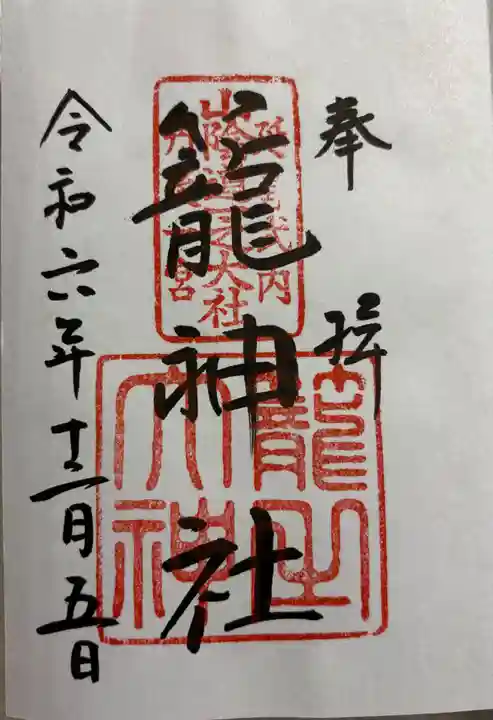 奉拝
籠神社
令和六年十二月五日
延喜式内
山陰道之大社
丹後一宮
籠之大神